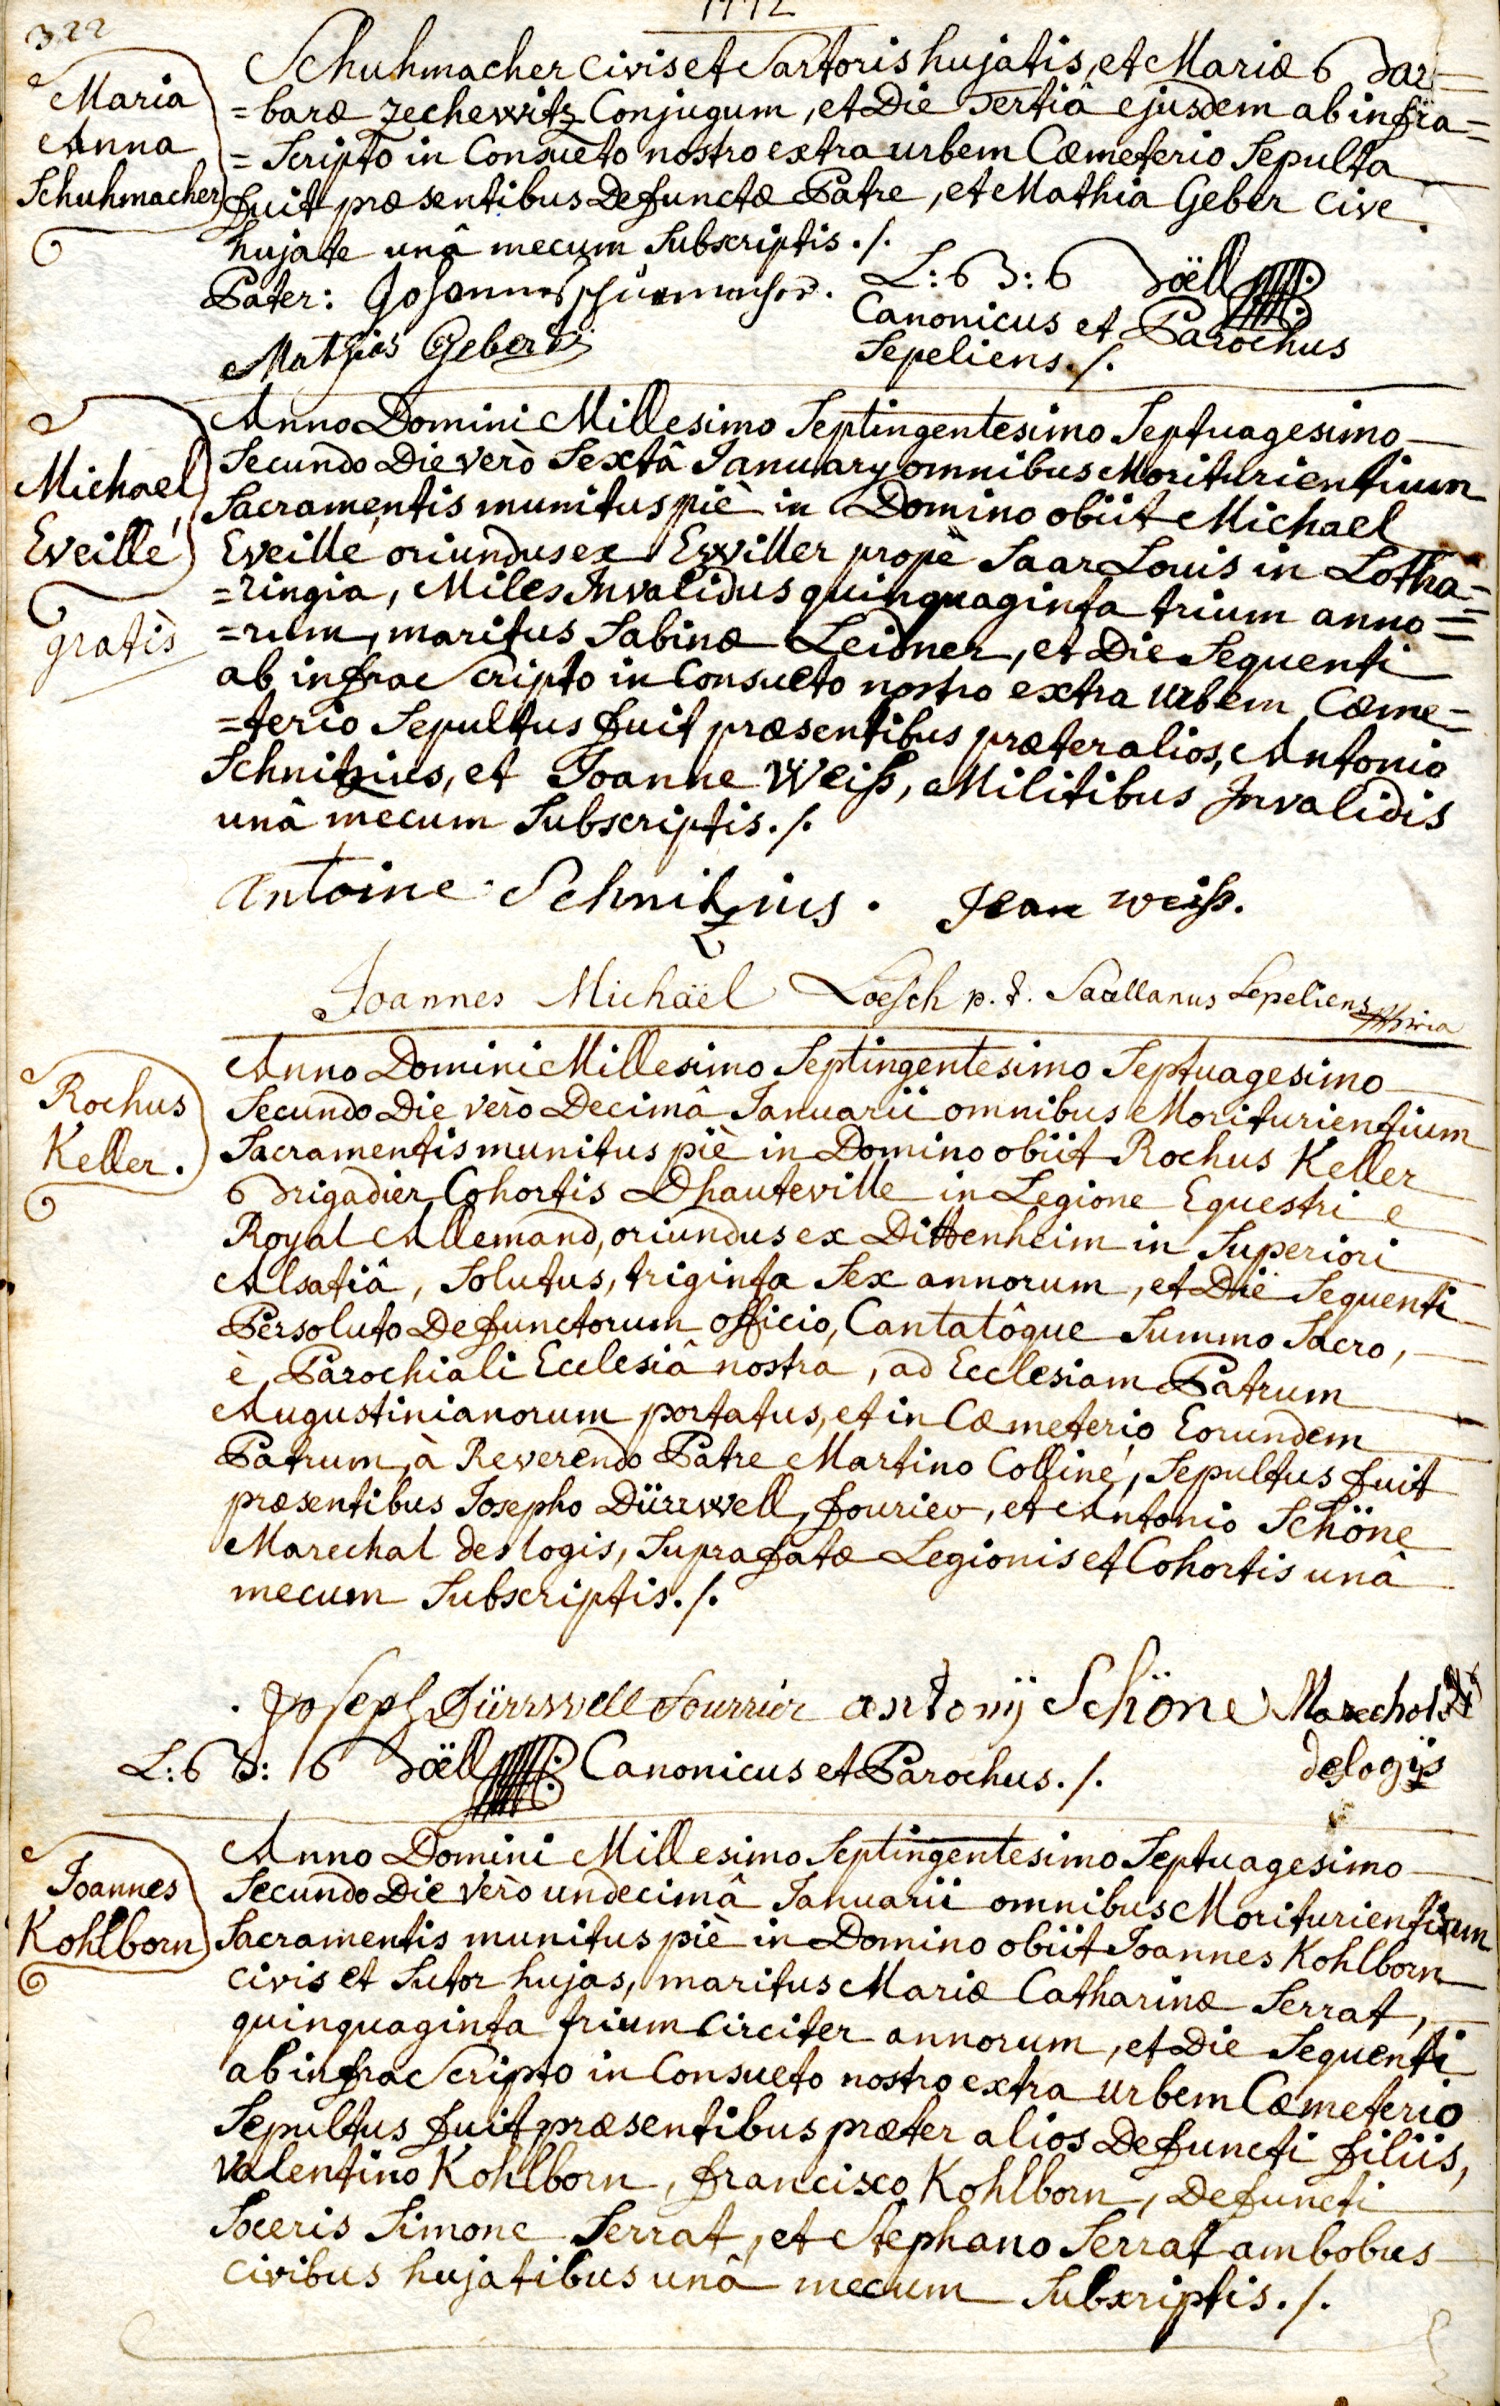 322
1772
Maria
Anna
Schuhmacher
Schuhmacher Civis et Sartoris hujatis, et Mariæ Bar=
=baræ Zechewitz Conjugum, et Die Tertiâ ejusdem ab infra=
=Scripto in Consueto nostro extra urbem Cœmeterio Sepulta
fuit præsentibus Defunctæ Patre, et Mathia Geber Cive
hujate unâ mecum Subscriptis ./.
Pater: Johannes Schuemacher.
L: B: Böell
Canonicus et Parochus
Sepeliens ./.
Mathias Geber
Michael
Eveillé
gratis
Anno Domini Millesimo Septingentesimo Septuagesimo
Secundo Die verò Sextâ January omnibus Moriturientium
Sacramentis munitus piè in Domino obiit Michael
Eveillé oriundus ex Ewiller propè Saar Louis in Lotha=
=ringia, Miles Invalidus quinquaginta trium anno=
=rum, maritus Sabinæ Leidner, et Die Sequenti
ab infrascripto in Consueto nostro extra Urbem Cœme=
=terio Sepultus fuit præsentibus præter alios, Antonio
Schnitzius, et Joanne Weiß, Militibus Invalidis
unâ mecum Subscriptis ./.
Antoine Schnitzius. Jean weiß.
Joannes Michaël Loesch p. t. Sacellanus Sepeliens
Rochus
Keller.
Anno Domini Millesimo Septingentesimo Septuagesimo
Secundo Die verò Decimâ Januarii omnibus Moriturientium
Sacramentis munitus piè in Domino obiit Rochus Keller
Brigadier Cohortis Dhauteville in Legione Equestri
Royal Allemand, oriundus ex Dittenheim in Superiori
Alsatiâ, Solutus, triginta Sex annorum, et Die Sequenti
Persoluto Defunctorum officio, Cantatôque Summo Sacro,
è Parochiali Ecclesiâ nostrâ, ad Ecclesiam Patrum
Augustinianorum portatus, et in Cœmeterio Eorundem
Patrum, à Reverendo Patre Martino Colliné, Sepultus fuit
præsentibus Josepho Dürrwell, fourier, et Antonio Schöne
Marechal des logis, Suprafatæ Legionis et Cohortis unâ
mecum Subscriptis ./.
Joseph Dürrwell Fourrier antonÿ Schöne Marechol
delogis
L: B: Böell Canonicus et Parochus ./.
Joannes
Kohlborn
Anno Domini Millesimo Septingentesimo Septuagesimo
Secundo Die verò undecimâ Januarii omnibus Moriturientium
Sacramentis munitus piè in Domino obiit Joannes Kohlborn
Civis et Sutor hujas, maritus Mariæ Catharinæ Serrat,
quinquaginta trium circiter annorum, et Die Sequenti
ab infrascripto in Consueto nostro extra urbem Cœmeterio
Sepultus fuit præsentibus præter alios Defuncti filiis,
Valentino Kohlborn, francisco Kohlborn, Defuncti
Soceris Simone Serrat, et Stephano Serrat ambobus
Civibus hujatibus unâ mecum Subscriptis ./.